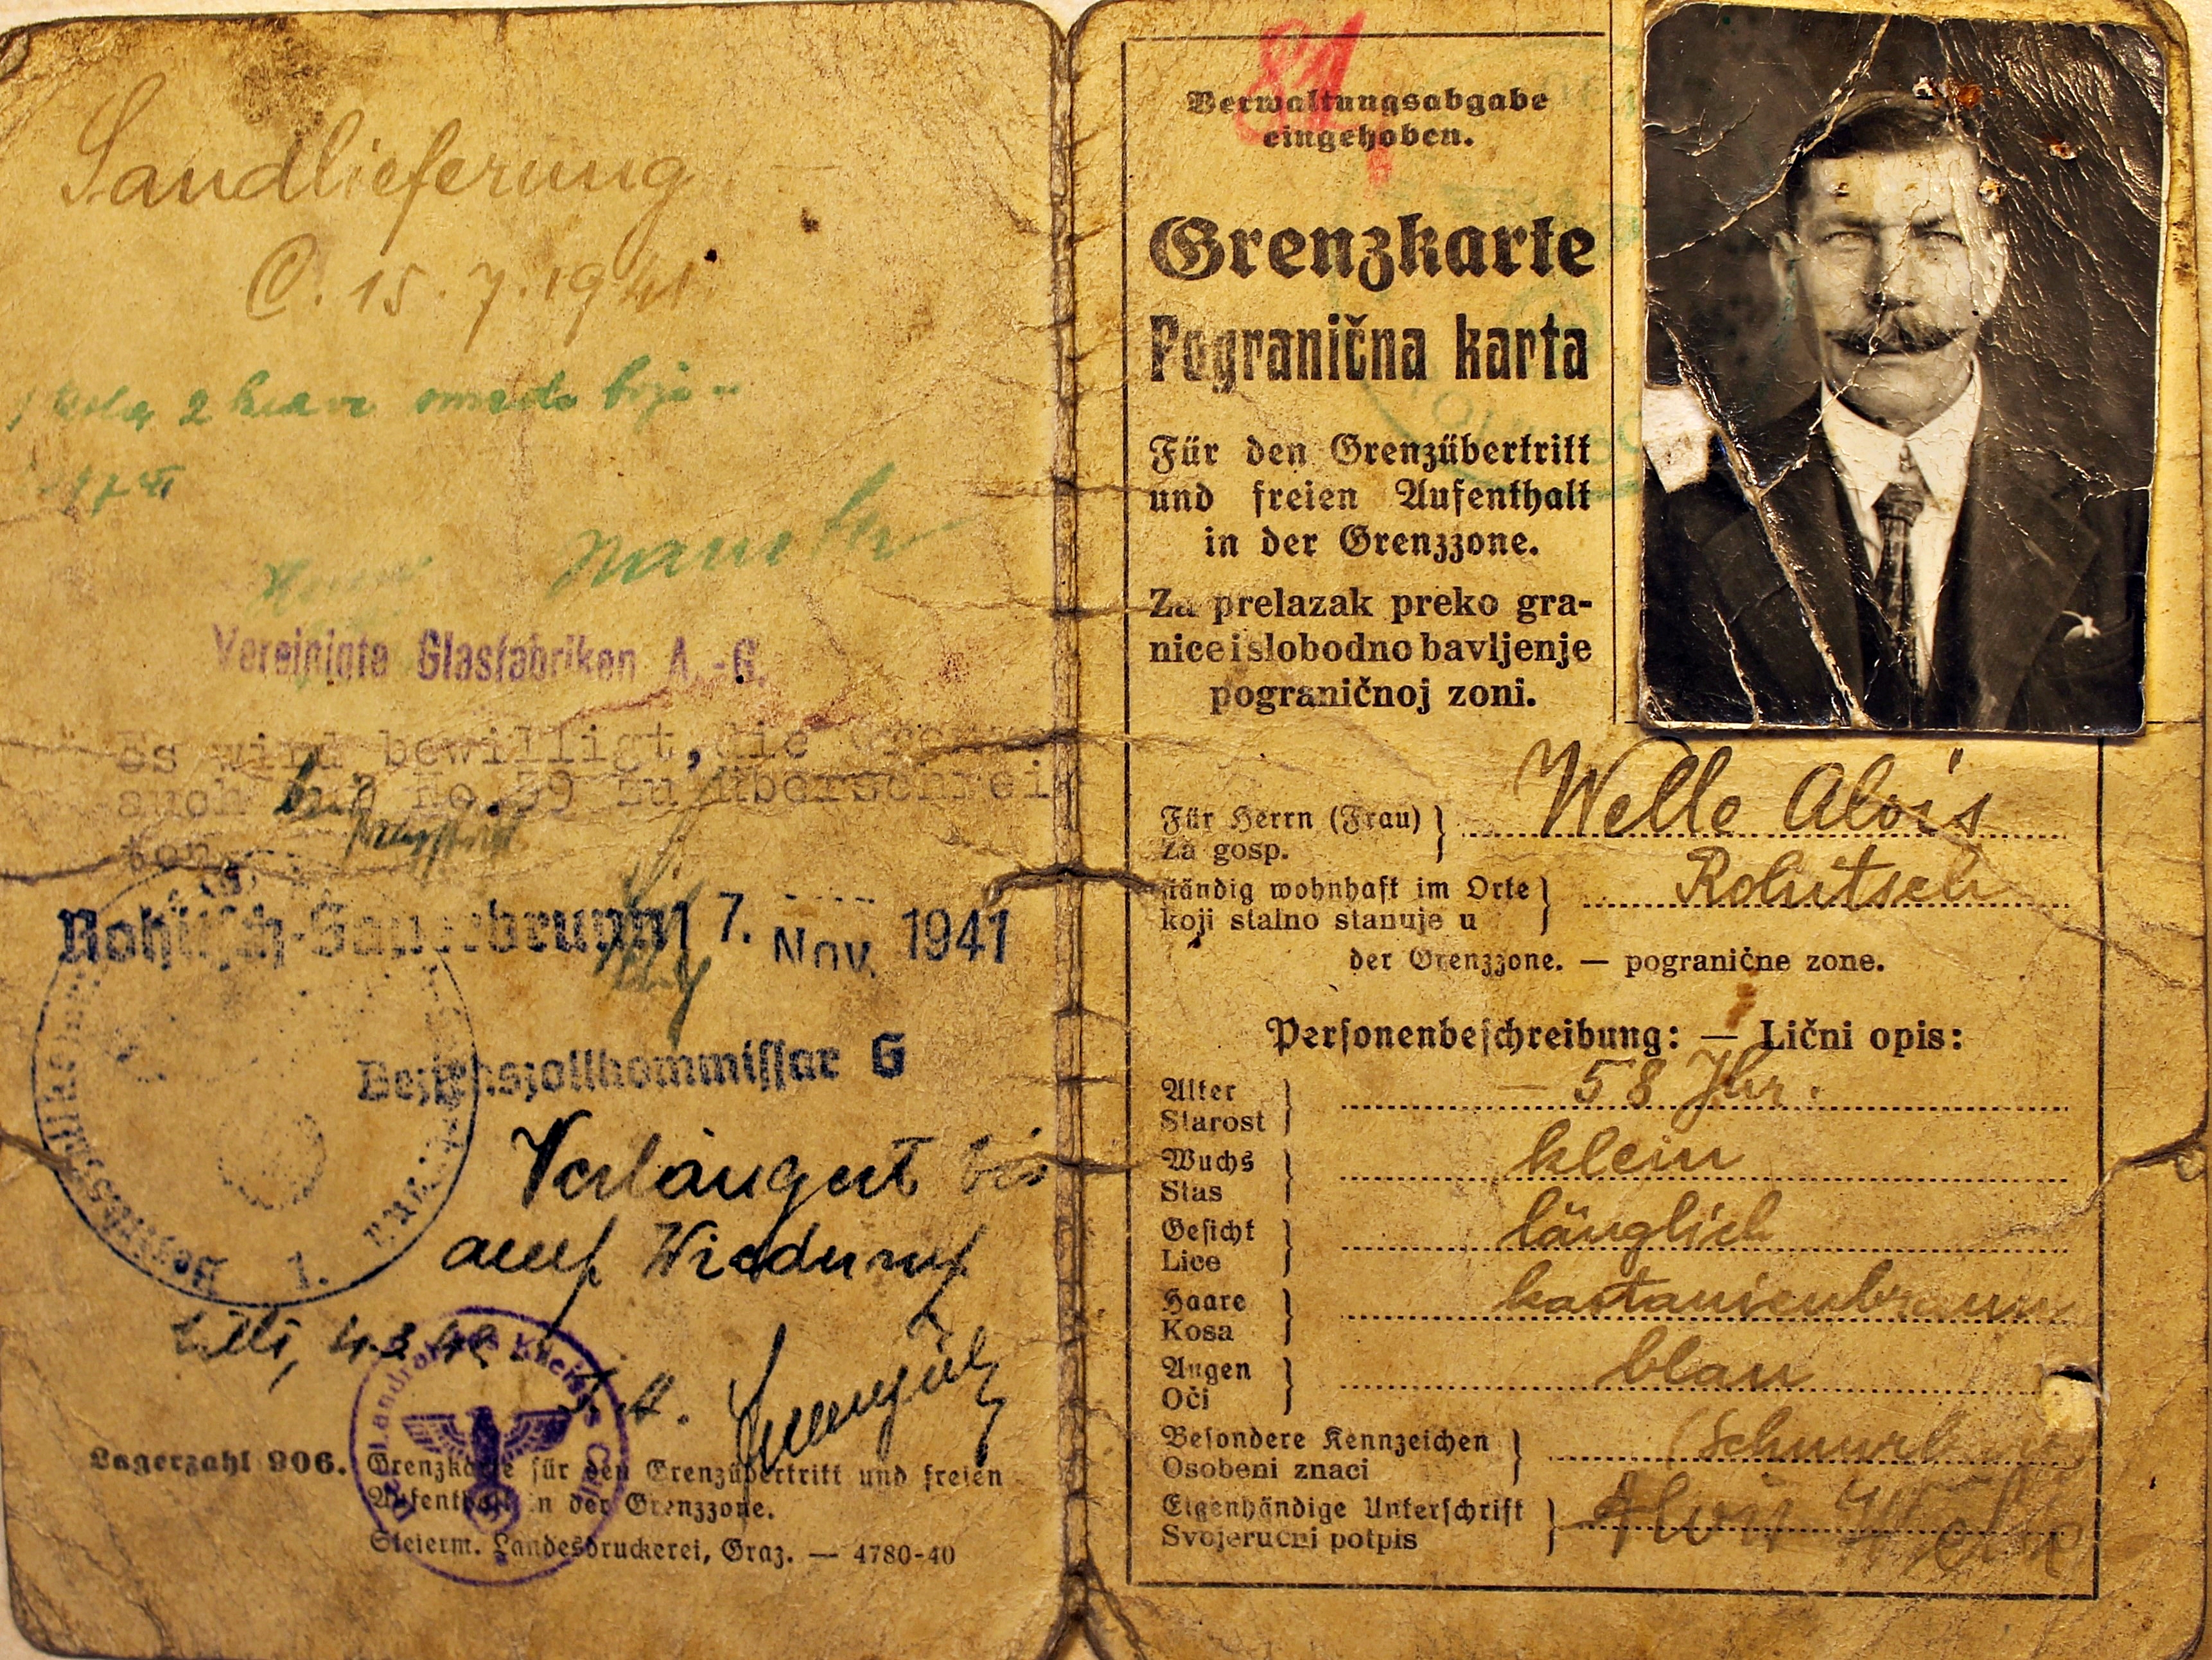 Sandlieferung
C. 15. 7. 1941.
2
Vereinigte Glasfabriken A.-G.
Es wird bewilligt, die
auch bei No.59 zu überschrei
ten.
Rohitsch-Sauerbrunn 17. Nov. 1941
Bezirkszollkommissar G
Verlängert bis
auf Widerruf
Cilli, 4.3.42
I. A.
Landrat des Kreises Cilli
Lagerzahl 906. Grenzkarte für den Grenzübertritt und freien
Aufenthalt in der Grenzzone.
Steierm. Landesdruckerei, Graz. — 4780-40
81
Verwaltungsabgabe
eingehoben.
Grenzkarte
Pogranična karta
Für den Grenzübertritt
und freien Aufenthalt
in der Grenzzone.
Za prelazak preko gra-
nice i slobodno bavljenje
pograničnoj zoni.
Für Herrn (Frau) Welle Alois
Za gosp.
ständig wohnhaft im Orte Rohitsch
koji stalno stanuje u
der Grenzzone. — pogranične zone.
Personenbeschreibung: — Lični opis:
Alter — 58 Jhr.
Starost
Wuchs klein
Stas
Gesicht länglich
Lice
Haare kastanienbraun
Kosa
Augen blau
Oči
Besondere Kennzeichen
Osobeni znaci
Eigenhändige Unterschrift Alois Welle
Svojeručni potpis